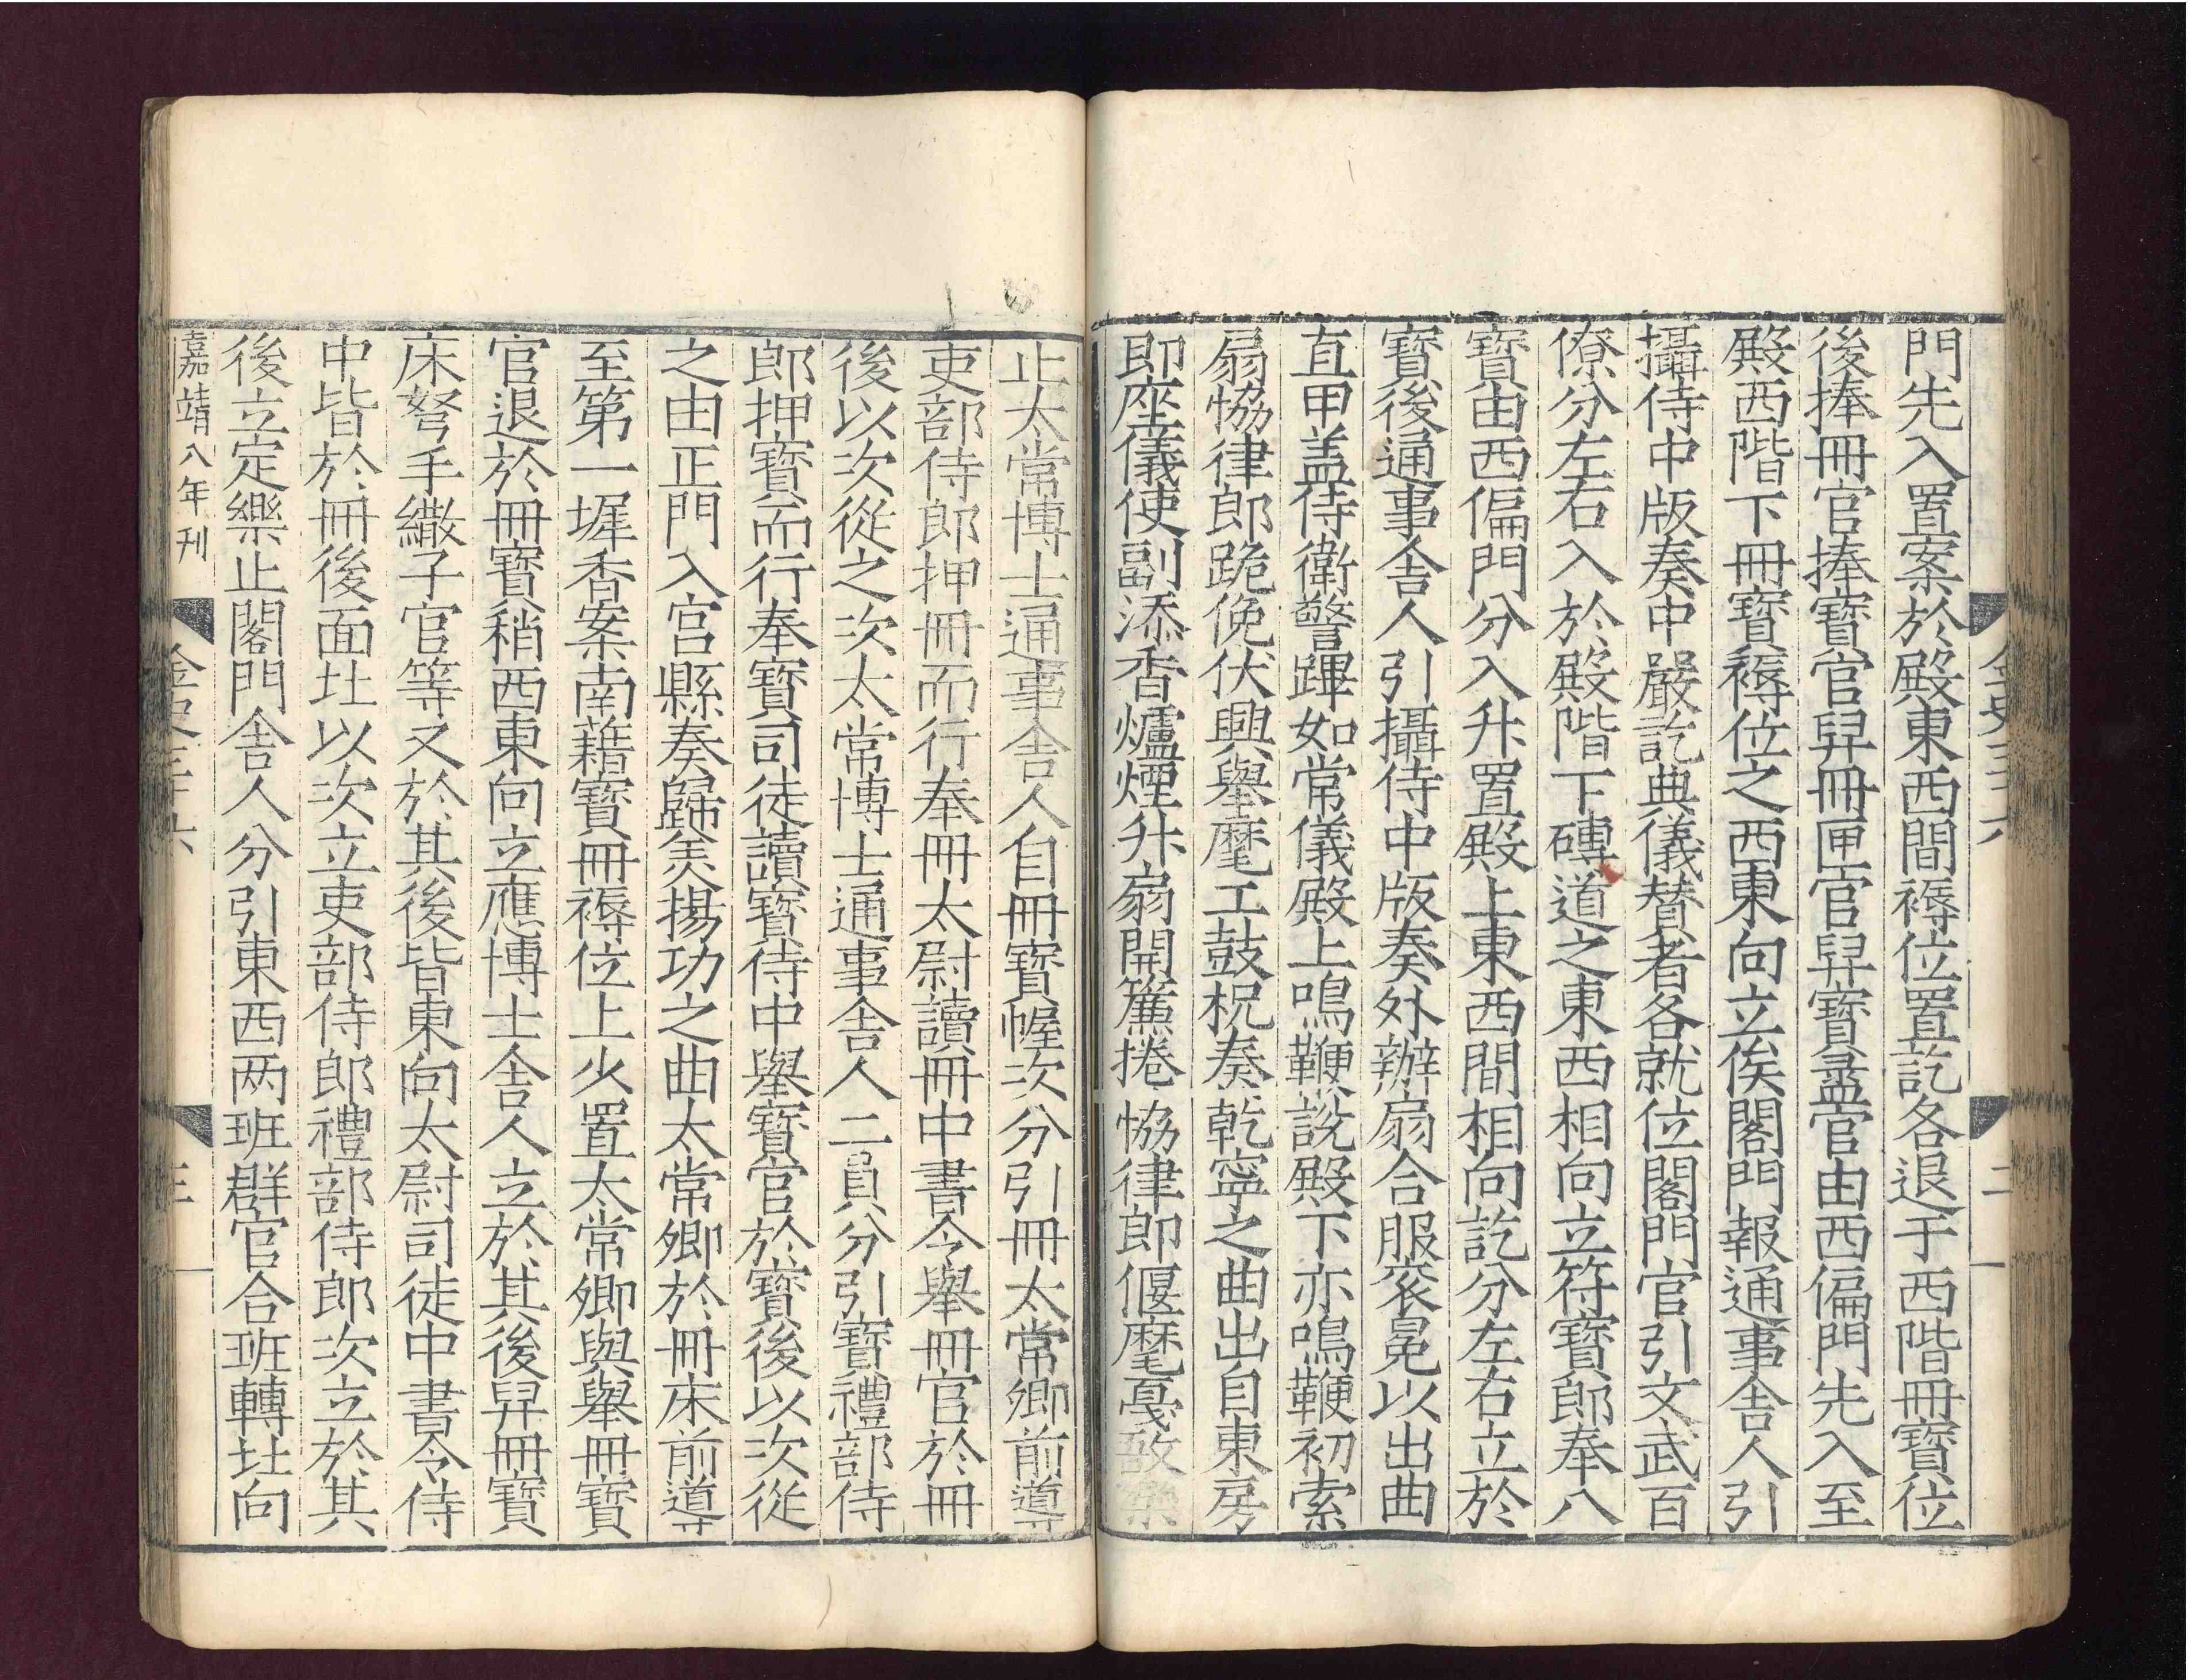 門先入置案於殿東西間褥位置訖各退于西階冊寶位
後捧冊官捧寶官舁冊匣官舁寶盝官由西偏門先入至
殿西階下冊寶褥位之西東向立俟閣門報通事舍人引
攝侍中版奏中嚴訖典儀贊者各就位閣門官引文武百
僚分左右入於殿階下磚道之東西相向立符寶郎奉八
寶由西偏門分入升置殿上東西間相向訖分左右立於
寶後通事舍人引攝侍中版奏外辦扇合服衮冕以出曲
直華盖侍衛警蹕如常儀殿上鳴鞭訖殿下亦鳴鞭初索
扇協律郎跪俛伏興舉麾工鼓柷奏乾寧之曲出自東房
即座儀使副添香爐煙升扇開簾捲協律郎偃麾戛敔樂
二
止太常博士通事舍人自冊寶幄次分引冊太常卿前導
吏部侍郎押冊而行奉冊太尉讀冊中書令舉冊官於冊
後以次從之次太常博士通事舍人二員分引寶禮部侍
郎押寶而行奉寶司徒讀寶侍中舉寶官於寶後以次從
之由正門入宮縣奏歸美揚功之曲太常卿於冊床前導
至第一墀香案南藉寶冊褥位上少置太常卿與舉冊寶
官退於冊寶稍西東向立應博士舍人立於其後舁冊寶
床弩手繖子官等又於其後皆東向太尉司徒中書令侍
中皆於冊後面北以次立吏部侍郎禮部侍郎次立於其
後立定樂止閣門舍人分引東西两班群官合班轉北向
嘉靖八年刊
金史三十六
三